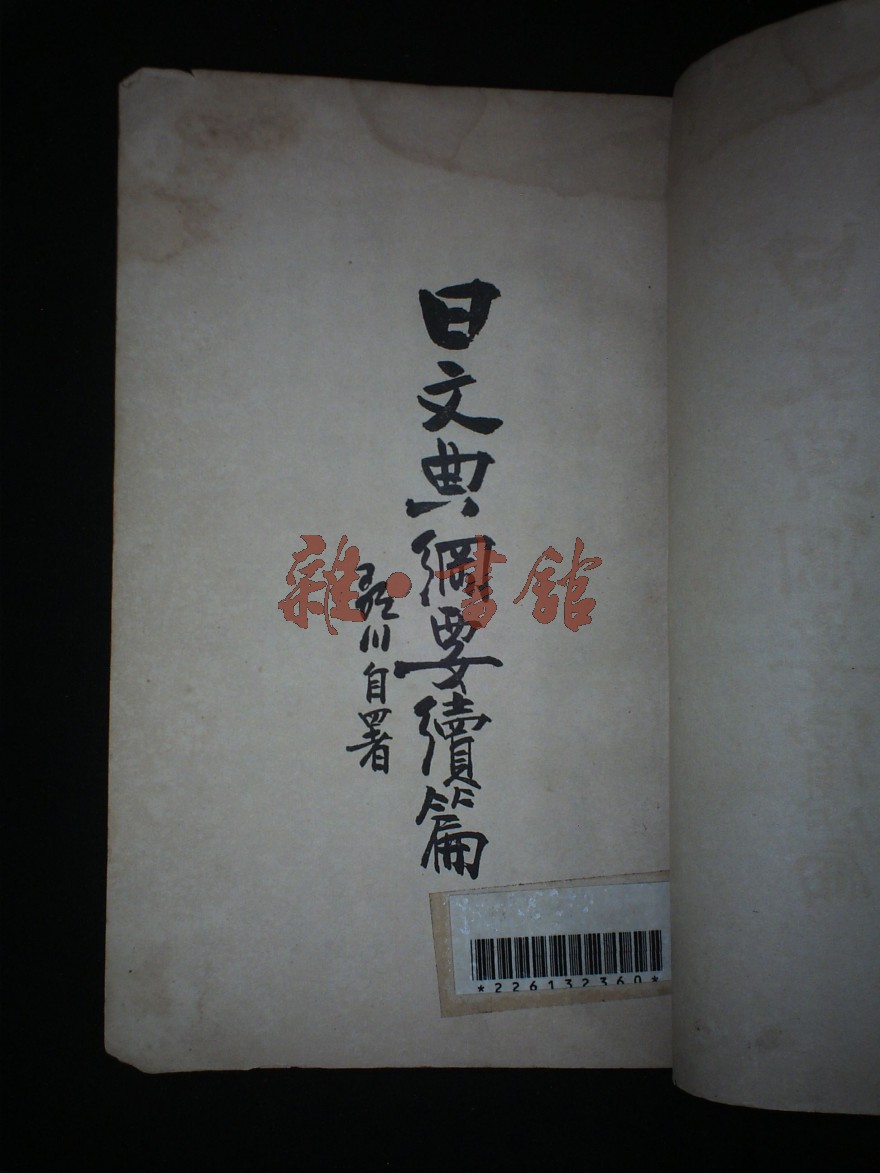 日文典綱要續篇
川自署
雜·書館
*226132360*